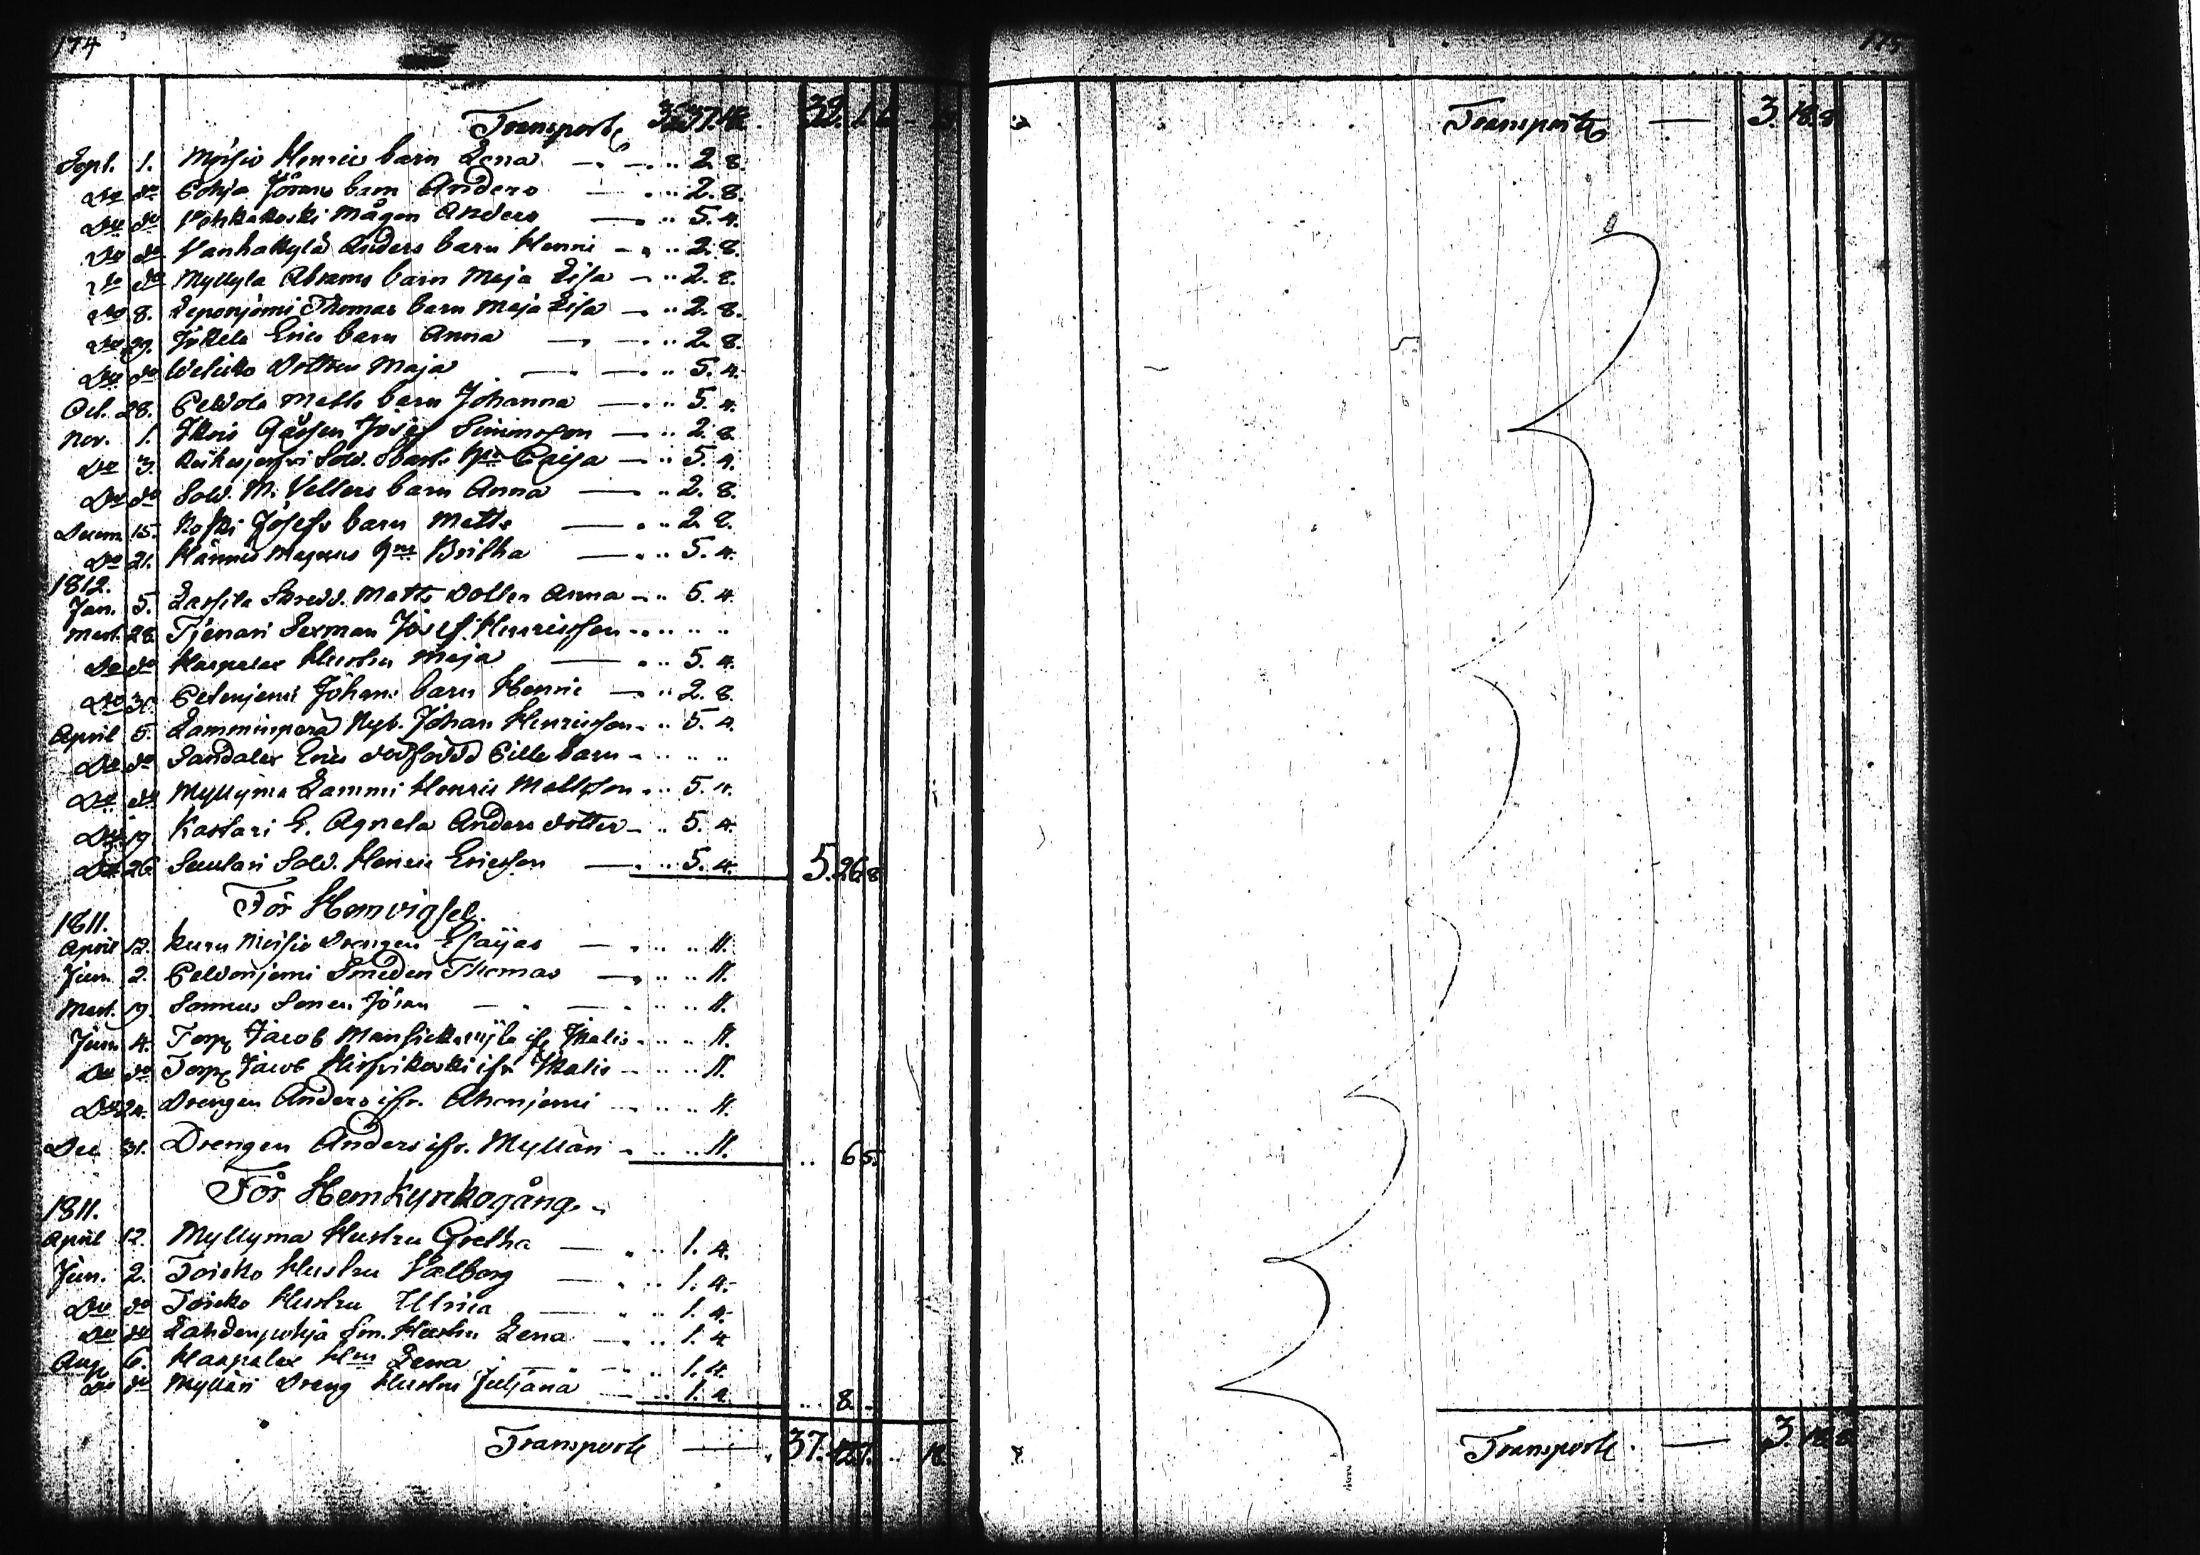 174
Transport 32. 1.
Sept. 1. Myisio Henrics barn Lena 2. 8.
Do do Pohja Jörans barn Anders 2. 8.
Do do Kohkakoski Mågen Anders 5. 4.
Do do Vanhakylä Anders barn Henric 2. 8.
Do do Myllylä Abrams barn Maja Lisa 2. 8.
Do 8. Leponjemi Thomas barn Maja Lisa 2. 8.
Do 29. Jokela Erics barn Anna 2. 8.
Do do Dottren Maja 5. 4.
Oct. 28. Peldola Matts barn Johanna 5. 4.
Nov. 1. Josef Simonsson 2. 8.
Do 3. Sold. Hu Caisa 5. 4.
Do do Sold. M. Vellers barn Anna 2. 8.
Decem. 15. Koski Josefs barn Matts 2. 8.
Do 21. Hännis Magnus Hu Britha 5. 4.
1812.
Jan. 5. Lassila Skredd. Matts Dotter Anna 5. 4.
Mart. 28. Tjenari Sexman Josef Henricsson
Do do Haapalax Hustru Maja 5. 4.
Do 30. Peltenjemi Johans barn Henric 2. 8.
April 5. Lamminperä Nyb. Johan Henricsson 5. 4.
Do do Sandalax Erics dödfödd Pille barn
Do do Myllyma Lammi Henric Mattsson 5. 4.
Do 19 Kastari E. Agneta Anders dotter 5. 4.
Do 26 Sold. Henric Ericsson 5. 4. 5. 26. 8
För Hemvigsel.
1811.
April 12. Kuru Misio Drengen Esaijas 11.
Jun. 2. Peldonjemi Smeden Thomas 11.
Mart. 19. Sonnus Sonen Jöran 11.
Jun. 4. Torp. Jacob Mansickamyla ifr. Ikalis 11.
Do do Torp. Jacob Hirsikoski ifr. Ikalis 11.
Do 24. Drengen Anders ifr. Ahonjemi 11.
Dec. 31. Drengen Anders ifr. Myllari 11. 6 5.
För Hemkyrkogång.
1811.
April 12. Myllyma Hustru Gretha 1. 4.
Jun. 2. Toisko Hustru Valborg 1. 4.
Do do Toisko Hustru Ulrica 1. 4.
Do do Lahdenpohja Sm. Hustru Lena 1. 4
Aug. 6. Haapalax Hu Lena 1. 4.
Do do Myllari Dreng Hustru Juljana 1. 4. 8
Transport 37. 18.
175
Transport 3. 18. 8
Transport 3. 18. 8